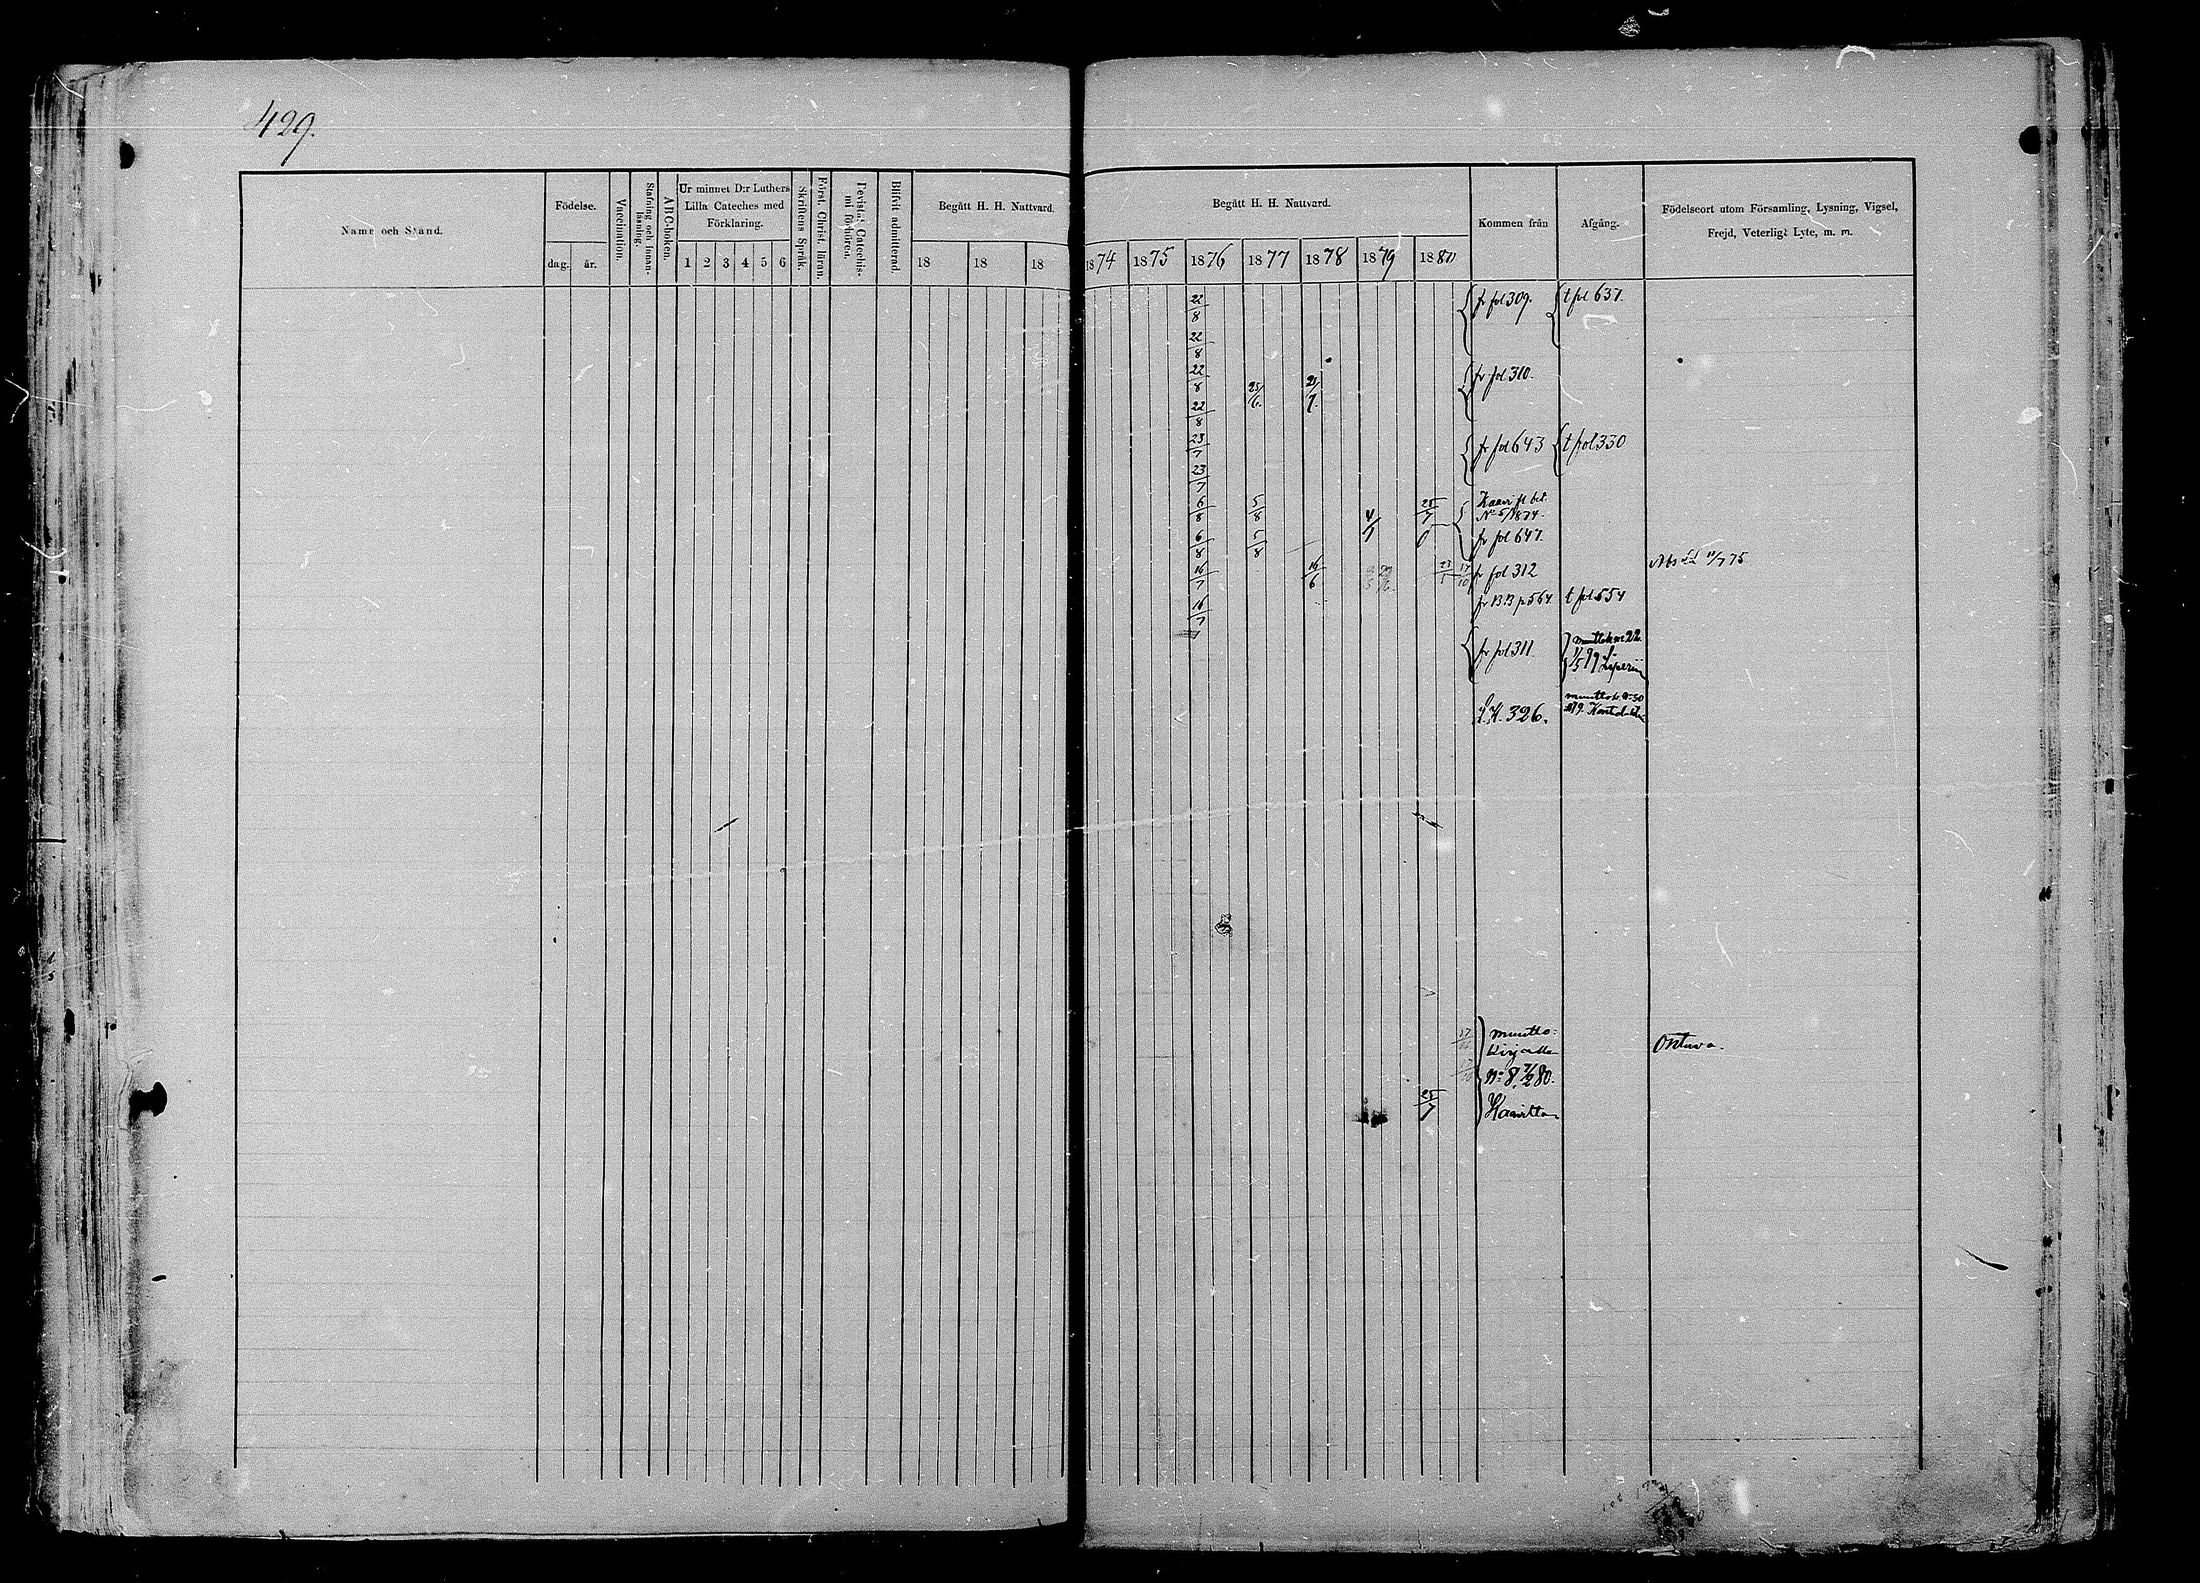 429.
Namn och Stånd.
Födelse.
dag.
år.
Vaccination.
Stafning och Innan-
läsning.
ABC-boken.
Ur minnet D:r Luthers
Lilla Cateches med
Förklaring.
1 2 3 4 5 6
Skriftens Språk.
Först. Christ. läran.
Bevistat Catechis-
mi förhören.
Blifvit admitterad.
Begått H. H. Nattvard.
18 18 18
Begått H. H. Nattvard.
1874 1875 1876 1877 1878 1879 1880
Kommen från
Afgång.
Födelseort utom Församling, Lysning, Vigsel,
Frejd, Veterligt Lyte, m. m.
22/8 fr fol 309. t fol 637.
22/8
22/8 25/6 21/7 fr fol 310.
22/8
23/7 fr fol 643 t fol 330
23/7
6/8 5/8 4/7 25/7
No 5/1874.
6/8 5/8 fr fol 647.
16/7 16/6 23 17/10 fr fol 312 Abs 11/7 75
16/7 fr BB p 564. t fol 554
fr fol 311. 22.
1/5 79 Liperiin
L.K. 326. 50
879.
17 muutto-
kirjalla
No 8. 7/2 80. Ontuva.
25/7 Kaavilta